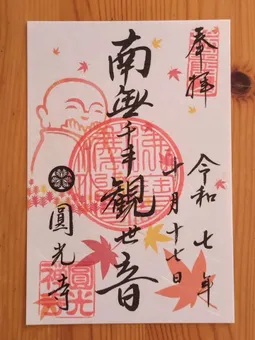 奉拝
令和七年
十月十七日
南無千手観世音
圓光寺